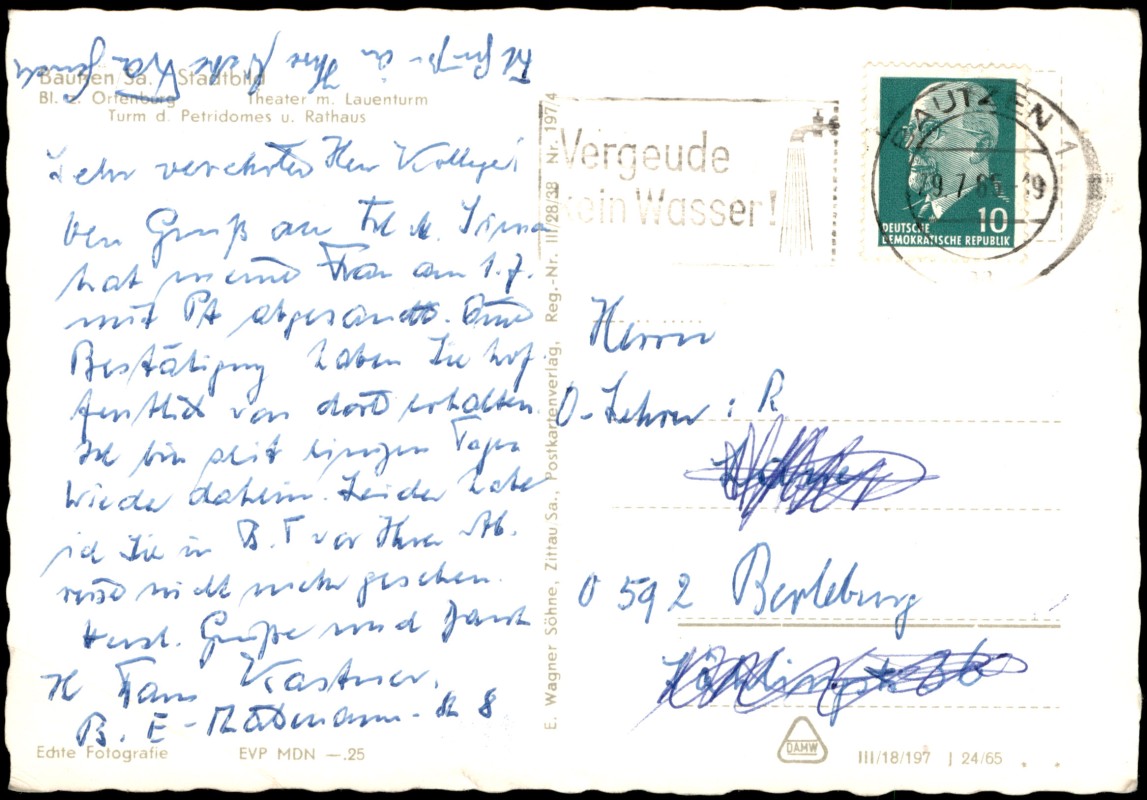 Bautzen/Sa. Stadtbild
Bl. z. Ortenburg Theater m. Lauenturm
Turm d. Petridomes u. Rathaus
Sehr verehrter Herr Kollege!
Den Gruß an Frl.
hat meine Frau am 1.7.
mit abgesandt. Eine
Bestätigung haben Sie hof-
fentlich von dort erhalten.
Ich bin seit einigen Tagen
wieder daheim. Leider habe
ich Sie in B. vor Ihrer Ab-
reise nicht mehr gesehen.
Herzl. Grüße und Dank
Ih Kastner.
B. E - 8
Echte Fotografie EVP MDN —.25
E. Wagner Söhne, Zittau Sa., Postkartenverlag, Reg.-Nr. III/28/38 Nr. 197/4
Vergeude
kein Wasser!
BAUTZEN 1
29.7.65-19
10
DEUTSCHE
DEMOKRATISCHE REPUBLIK
Herrn
O-Lehrer: R
0 592 Berleburg
DAMW
III/18/197 J 24/65